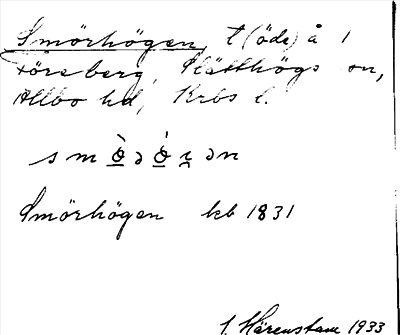 Smörhögen, t (öde) å 1
Föreberg, Slätthögs sn,
Allbo hd, Krbs l.
Smörhögen kb 1831
I. Härenstam 1933